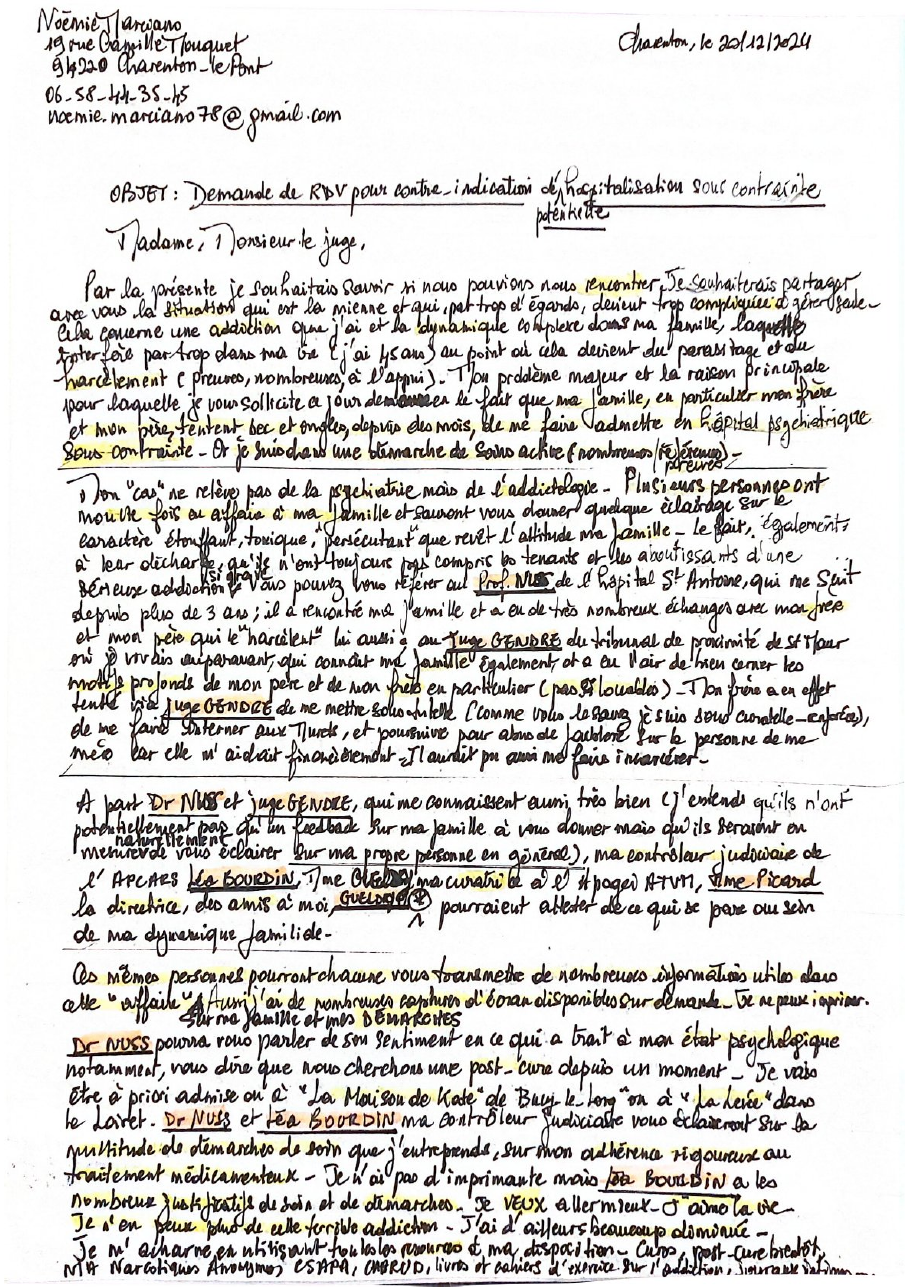 Noëmie Marciano
19 rue Camille Mouquet
94220 Charenton-le-Pont
06-58-44-35-45
noemie.marciano78@gmail.com
Charenton, le 20/12/2024
OBJET : Demande de RDV pour contre-indication d'hospitalisation sous contrainte
potentielle
Madame, Monsieur le juge,
Par la présente je souhaitais savoir si nous pouvions nous rencontrer. Je souhaiterais partager
avec vous la situation qui est la mienne et qui, par trop d'égards, devient trop compliquée à gérer seule.
Cela concerne une addiction que j'ai et la dynamique complexe dans ma famille, laquelle
interfère par trop dans ma vie (j'ai 45 ans) au point où cela devient du parasitage et du
harcèlement (preuves, nombreuses, à l'appui). Mon problème majeur et la raison principale
pour laquelle je vous sollicite ce jour demeure en le fait que ma famille, en particulier mon frère
et mon père, tentent bec et ongles, depuis des mois, de me faire admettre en hôpital psychiatrique
sous contrainte - Or je suis dans une démarche de soins active (nombreuses références) -
preuves
Mon "cas" ne relève pas de la psychiatrie mais de l'addictologie - Plusieurs personnes ont
moulte fois eu affaire à ma famille et sauront vous donner quelque éclairage sur le
caractère étouffant, toxique, "persécutant" que revêt l'attitude ma famille - le fait, également,
à leur décharge, qu'ils n'ont toujours pas compris les tenants et les aboutissants d'une
si grave
sérieuse addiction - Vous pouvez vous référer au Prof. NUSS de l'hôpital St Antoine, qui me suit
depuis plus de 3 ans ; il a rencontré ma famille et a eu de très nombreux échanges avec mon frère
et mon père qui le "harcèlent" lui aussi ; au juge GENDRE du tribunal de proximité de St Maur
où je vivais auparavant, qui connaît ma famille également, et a eu l'air de bien cerner les
motifs profonds de mon père et de mon frère en particulier (pas si louables) - Mon frère a en effet
tenté via juge GENDRE de me mettre sous tutelle (comme vous le savez je suis sous curatelle renforcée),
de me faire interner aux Murets, et poursuivre pour abus de faiblesse sur la personne de ma
mère car elle m'aidait financièrement - Il aurait pu ainsi me faire incarcérer -
A part Dr NUSS et juge GENDRE, qui me connaissent aussi, très bien (j'entends qu'ils n'ont
potentiellement pas qu'un feedback sur ma famille à vous donner mais qu'ils seraient en
naturellement
mesure de vous éclairer sur ma propre personne en général), ma contrôleur judiciaire de
l'APCARS Léa BOURDIN, Mme ma curatrice à l'Apogei ATVM, Mme Picard
la directrice, des amis à moi, GUELDO pourraient attester de ce qui se passe au sein
de ma dynamique familiale -
Ces mêmes personnes pourront chacune vous transmettre de nombreuses informations utiles dans
cette "affaire" Aussi j'ai de nombreuses captures d'écran disponibles sur demande - Je ne peux imprimer.
sur ma famille et mes DÉMARCHES
Dr NUSS pourra vous parler de son sentiment en ce qui a trait à mon état psychologique
notamment, vous dire que nous cherchons une post-cure depuis un moment - Je vais
être à priori admise ou à "La Maison de Kate" de Bucy-le-Long ou à "La Levée" dans
le Loiret. Dr NUSS et Léa BOURDIN ma contrôleur judiciaire vous éclaireront sur la
multitude de démarches de soin que j'entreprends, sur mon adhérence rigoureux au
traitement médicamenteux - Je n'ai pas d'imprimante mais Léa BOURDIN a les
nombreux justificatifs de soin et de démarches - Je VEUX aller mieux - J'aime la vie -
Je n'en peux plus de cette terrible addiction - J'ai d'ailleurs beaucoup diminué -
Je m'acharne en utilisant toutes les ressources à ma disposition - Cures, post-cure bientôt,
NA Narcotiques Anonymes, CSAPA, CAARUD, livres et cahiers d'exercice sur l'addiction,